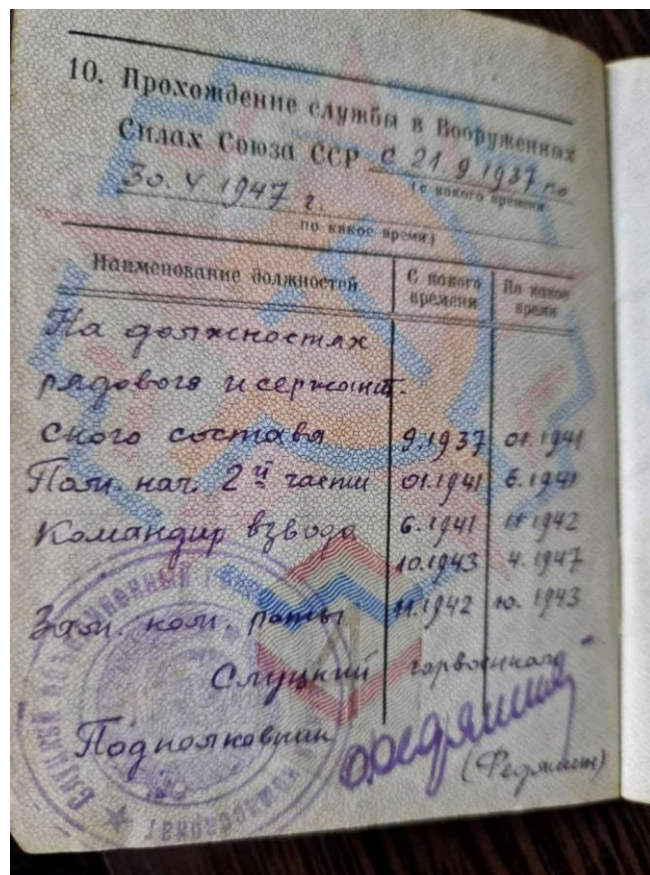 10. Прохождение службы в Вооруженных
Силах Союза ССР с 21.9.1937 по
(с какого времени
30.4.1947 г.
по какое время)
Наименование должностей С какого времени По какое время
На должностях
рядового и сержант.
ского состава 9.1937 01.1941
Пом. нач. 2й части 01.1941 6.1941
Командир взвода 6.1941 11.1942
10.1943 4.1947
Зам. ком. роты 11.1942 10.1943
Слуцкий горвоенком
Подполковник
(Федяшин)
комиссариат